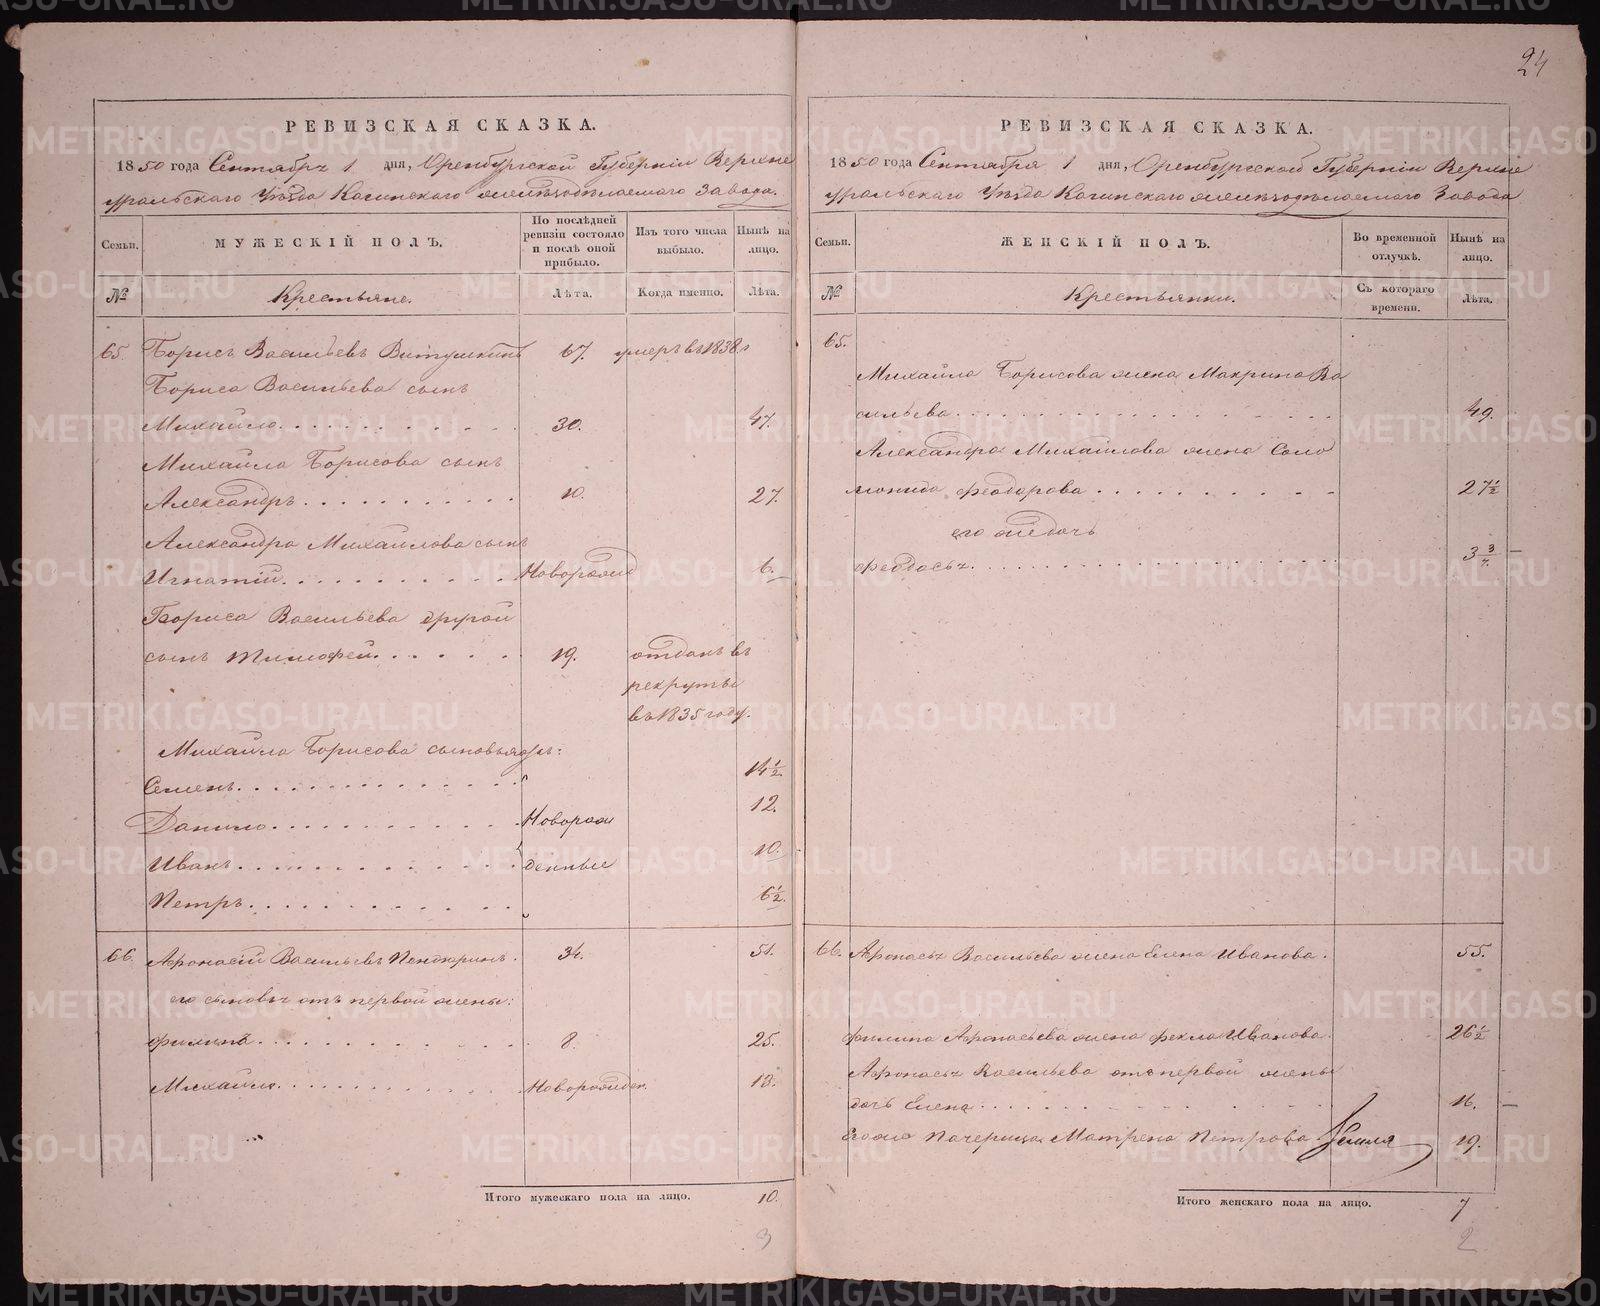 24
РЕВИЗСКАЯ СКАЗКА.
1850 года Сентября 1 дня, Оренбургской Губерніи Верхне
уральскаго Уѣзда Кагинскаго желѣзодѣлаемаго Завода.
Семьи.
МУЖЕСКІЙ ПОЛЪ.
По послѣдней
ревизіи состояло
и послѣ оной
прибыло.
Изъ того числа
выбыло.
Нынѣ на
лицо.
№
Крестьяне.
Лѣта.
Когда именно.
Лѣта.
65. Борисъ Васильевъ Витушкинъ 67. умеръ въ 1838 г
Бориса Васильева сынъ
Михайло 30. 47.
Михайла Борисова сынъ
Александръ 10. 27.
Александра Михайлова сынъ
Игнатій Новорожд 6.
Бориса Васильева другой
сынъ Тимофей 19. отданъ въ
рекруты
въ 1835 году.
Михайла Борисова сыновья
Семенъ 14½
Данило Новорож 12.
Иванъ денные 10.
Петръ 6½.
66. Афонасій Васильевъ 34. 51.
его сыновья отъ первой жены:
Филипъ 8. 25.
Михайло Новорожден. 13.
Итого мужескаго пола на лицо. 10.
3
РЕВИЗСКАЯ СКАЗКА.
1850 года Сентября 1 дня, Оренбургской Губерніи Верхне
уральскаго Уѣзда Кагинскаго желѣзодѣлаемаго Завода
Семьи.
ЖЕНСКІЙ ПОЛЪ.
Во временной
отлучкѣ.
Нынѣ на
лицо.
№
Крестьянки.
Съ котораго
времени.
Лѣта.
65.
Михайла Борисова жена Макрина Ва
сильева 49.
Александра Михайлова жена Соло
монида Феодорова 27½
его дочь
Феодосья 3
66. Афонасья Васильева жена Елена Иванова. 55.
Филипа Афонасьева жена Фекла Иванова. 26½
Афонасья Васильева отъ первой жены
дочь Елена 16.
Егоже Пачерица Матрена Петрова 19.
Итого женскаго пола на лицо. 7
2
METRIKI.GASO-URAL.RU